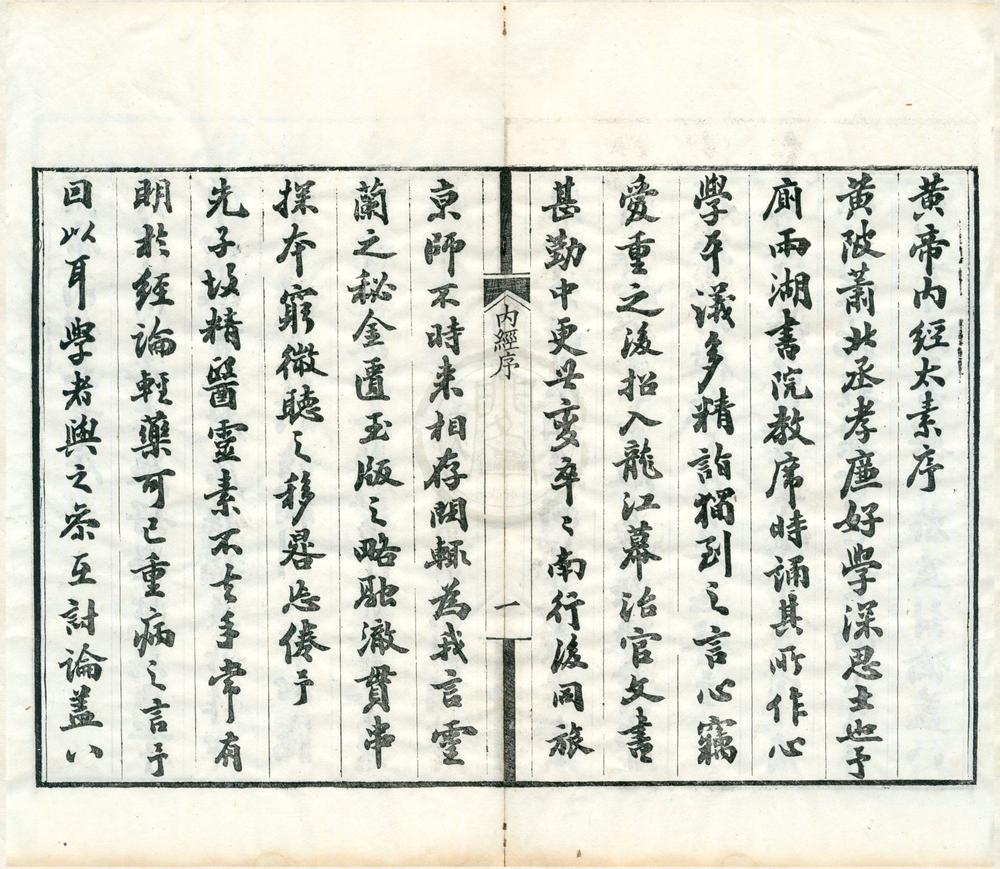 黃帝内經太素序
黃陂蕭北丞孝廉好學深思士也予
廁兩湖書院教席時誦其所作心
學平議多精詣獨到之言心竊
愛重之後招入龍江幕治官文書
甚勤中更世變卒〻南行後同旅
京師不時来相存問輒為我言靈
蘭之秘金匱玉版之略融澈貫串
探本窮微聽之移晷忘倦予
先子故精醫靈素不去手常有
明於經論輕藥可已重病之言予
回以耳學者與之參互討論蓋八
内經序
一